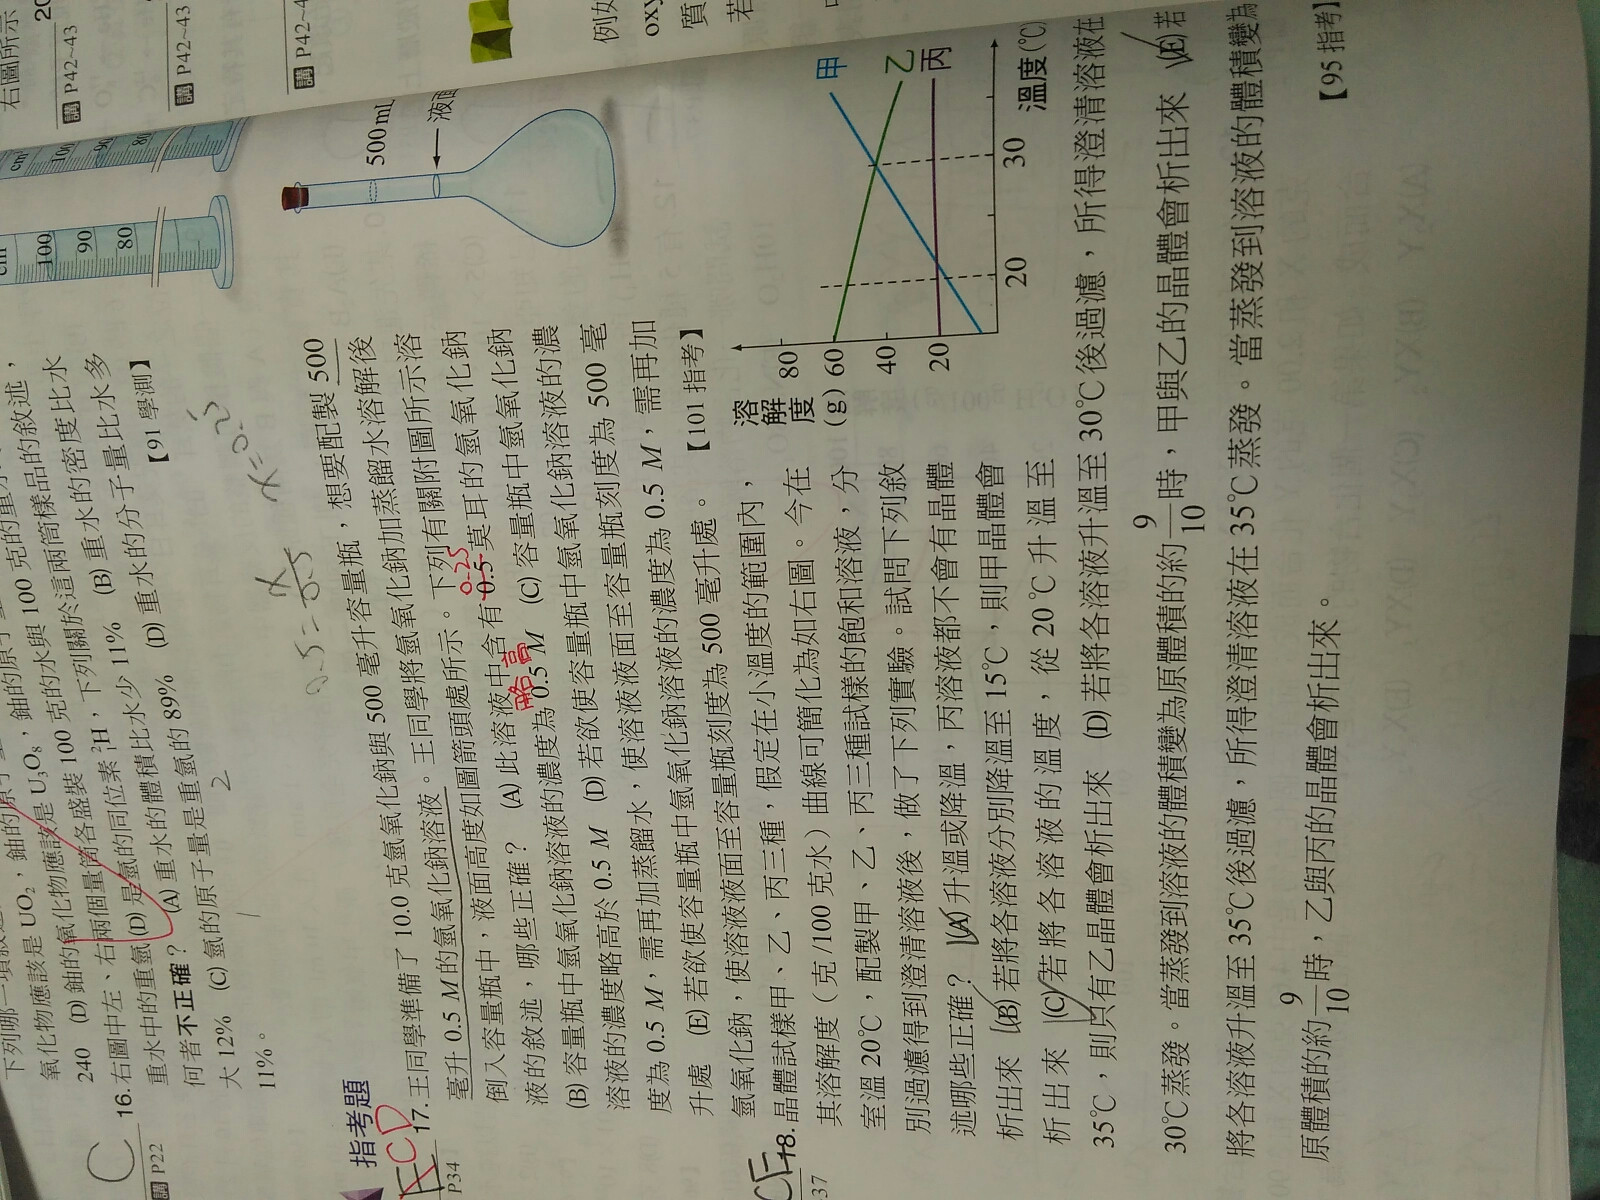 右圖所示
講 P42~43
講 P42~43
講 P42~4
例如
oxy
質
若
cm³
100
90
80
100
90
80
500 mL
液面
氧化物應該是 UO₂,鈾的原
氧化物應該是 U₃O₈,鈾的原子量
240 (D) 鈾的氧化物應該是
C
16. 右圖中左、右兩個量筒各盛裝 100 克的水與 100 克的重水
講 P22
重水中的重氫(D)是氫的同位素 ²₁H,下列關於這兩筒樣品的敘述,
何者不正確? (A) 重水的體積比水少 11% (B) 重水的密度比水
大 12% (C) 氫的原子量是重氫的 89% (D) 重水的分子量比水多
11%。
【91 學測】
指考題
CD
17. 王同學準備了 10.0 克氫氧化鈉與 500 毫升容量瓶,想要配製 500
P34
毫升 0.5 M 的氫氧化鈉溶液。王同學將氫氧化鈉加蒸餾水溶解後
倒入容量瓶中,液面高度如圖箭頭處所示。下列有關附圖所示溶
液的敘述,哪些正確? (A) 此溶液中含有 0.5 莫耳的氫氧化鈉
0.25
略高
(B) 容量瓶中氫氧化鈉溶液的濃度為 0.5 M (C) 容量瓶中氫氧化鈉
溶液的濃度略高於 0.5 M (D) 若欲使容量瓶中氫氧化鈉溶液的濃
度為 0.5 M,需再加蒸餾水,使溶液液面至容量瓶刻度為 500 毫
升處 (E) 若欲使容量瓶中氫氧化鈉溶液的濃度為 0.5 M,需再加
氫氧化鈉,使溶液液面至容量瓶刻度為 500 毫升處。
【101 指考】
18. 晶體試樣甲、乙、丙三種,假定在小溫度的範圍內,
37
其溶解度(克/100 克水)曲線可簡化為如右圖。今在
室溫 20℃,配製甲、乙、丙三種試樣的飽和溶液,分
別過濾得到澄清溶液後,做了下列實驗。試問下列敘
述哪些正確? (A) 升溫或降溫,丙溶液都不會有晶體
析出來 (B) 若將各溶液分別降溫至 15℃,則甲晶體會
析出來 (C) 若將各溶液的溫度,從 20℃升溫至
35℃,則只有乙晶體會析出來 (D) 若將各溶液升溫至 30℃後過濾,所得澄清溶液在
30℃蒸發。當蒸發到溶液的體積變為原體積的約 9/10 時,甲與乙的晶體會析出來 (E) 若
將各溶液升溫至 35℃後過濾,所得澄清溶液在 35℃蒸發。當蒸發到溶液的體積變為
原體積的約 9/10 時,乙與丙的晶體會析出來。
【95 指考】
溶解度(g)
80
60
40
20
20
30
溫度(℃)
甲
乙
丙